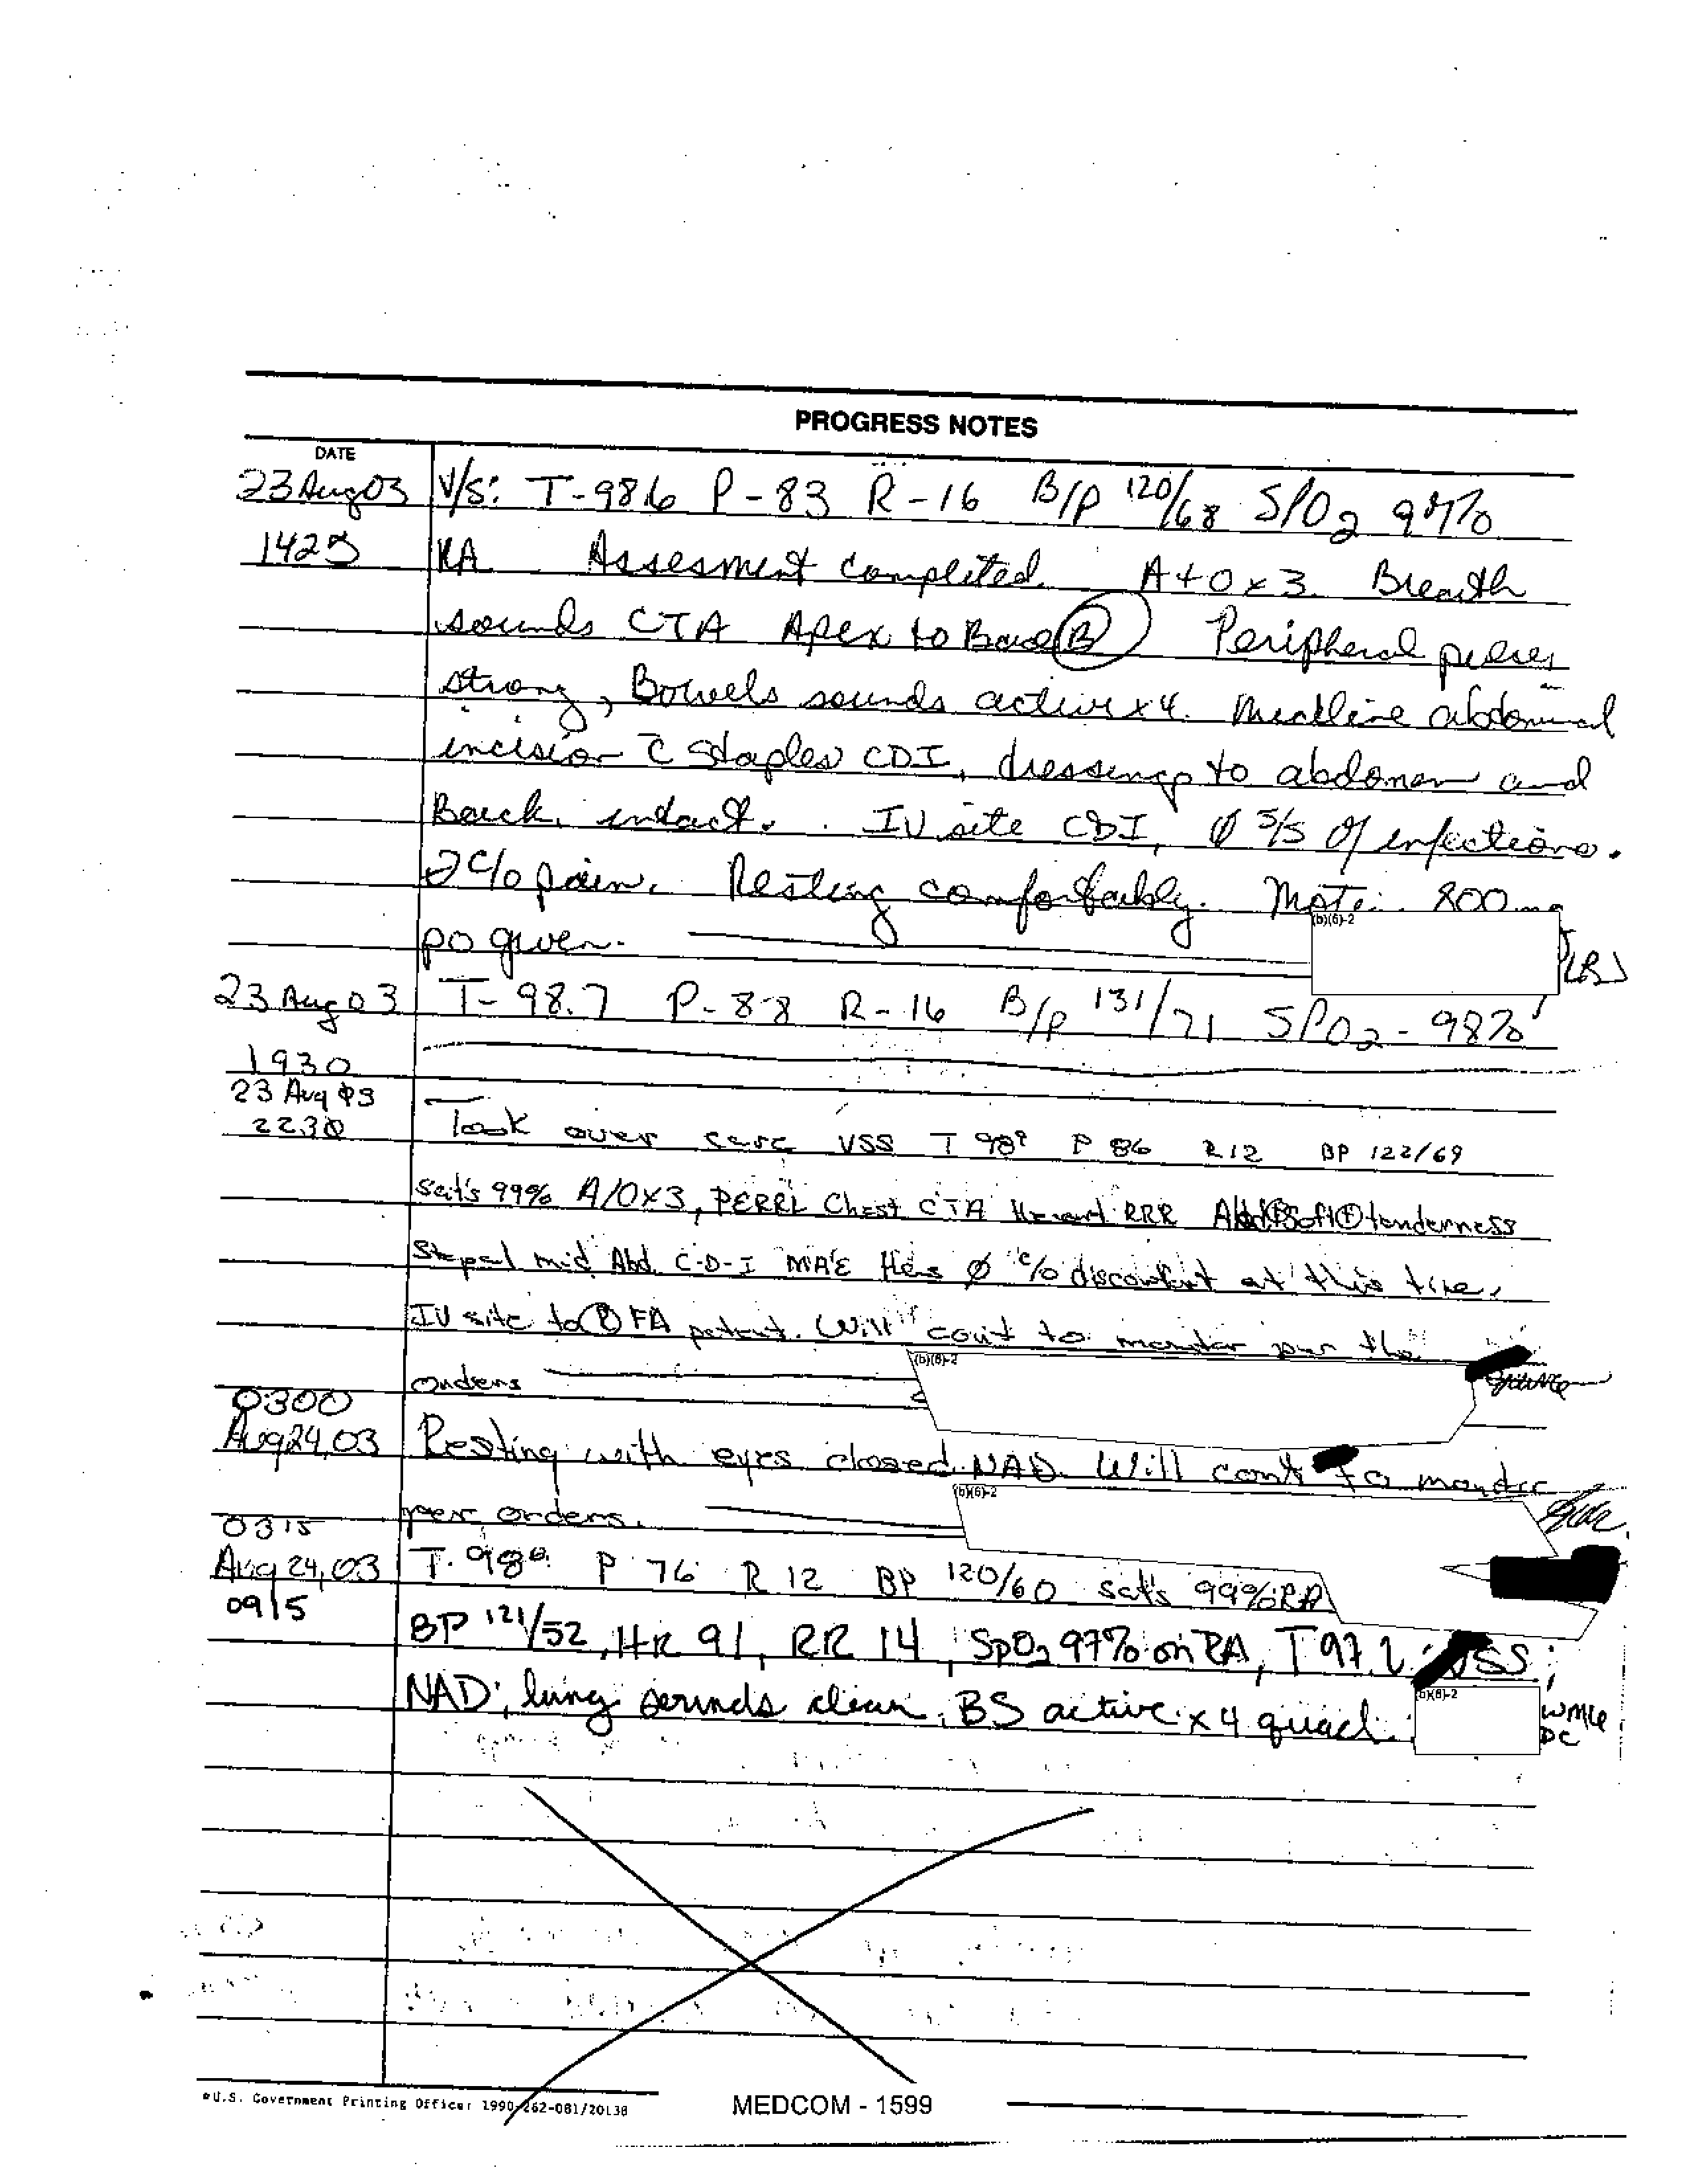 PROGRESS NOTES
DATE
23 Aug 03 V/S: T-98.6 P-83 R-16 B/P 120/68 SPO2 97%
1425 RA Assesment completed. A+O x 3. Breath
sounds CTA Apex to Base (B) Peripheral pulses
strong, Bowels sounds active x 4. Midline abdominal
incision c̄ staples CDI, dressings to abdomen and
Back intact. IV site CDI, Ø s/s of infections.
c/o pain. Resting comfortably. Motrin 800 mg
po given.
(b)(6)-2
23 Aug 03 T-98.7 P-88 R-16 B/P 131/71 SPO2-98%
1930
23 Aug 03
2230 Took over care VSS T 98° P 86 R 12 BP 122/69
sat's 99% A/O x 3, PERRL Chest CTA Heart RRR Abd soft (+) tenderness
mid Abd C-D-I MAE Has Ø c/o discomfort at this time.
IV site to FA patent. Will cont to monitor per the
(b)(6)-2
orders
0300
Aug 24, 03 Resting with eyes closed. NAD. Will cont to monitor
(b)(6)-2
per orders.
0315
Aug 24, 03 T. 98° P 76 R 12 BP 120/60 sat's 99% RA
0915
BP 121/52, HR 91, RR 14, SpO2 97% on RA, T 97.2 VSS;
NAD; lung sounds clear, BS active x 4 quad.
(b)(6)-2
U.S. Government Printing Office: 1990-262-081/20138
MEDCOM - 1599